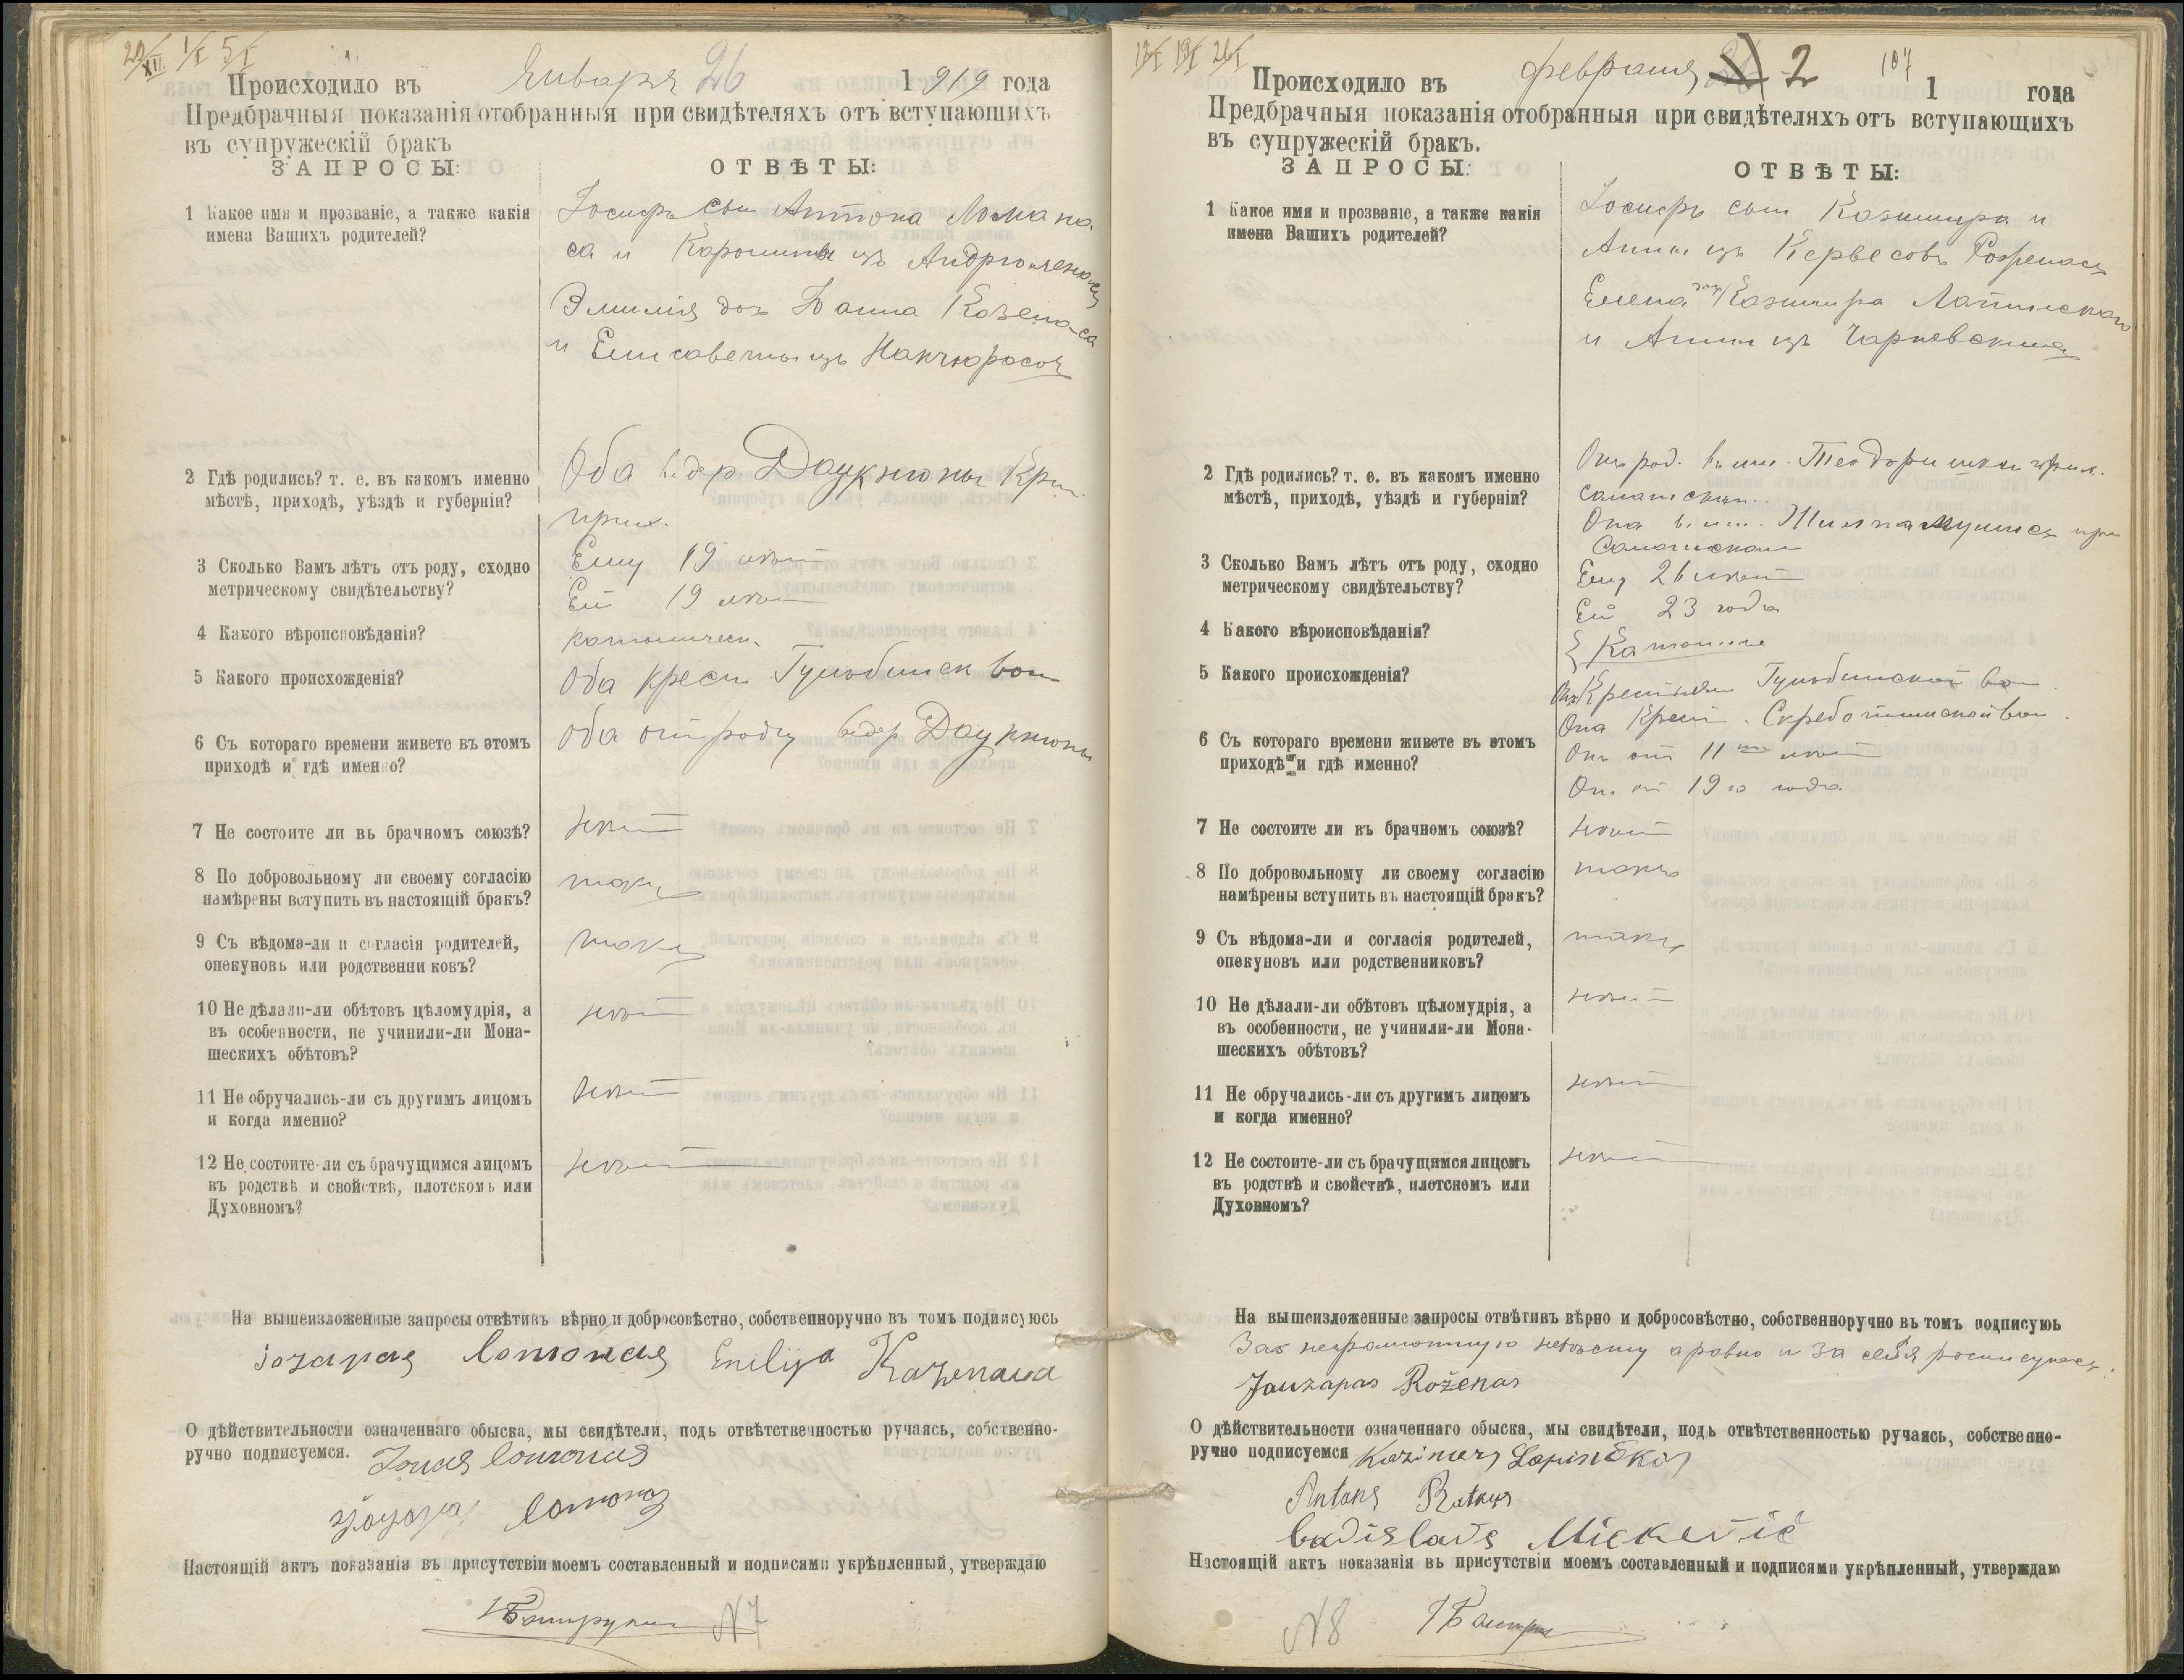 20/XII 1/I 5/I
Происходило въ Января 26 1919 года
Предбрачныя показанія отобранныя при свидѣтеляхъ отъ вступающихъ
въ супружескій бракъ
ЗАПРОСЫ: ОТВѢТЫ:
1 Какое имя и прозваніе, а также какія
имена Вашихъ родителей?
Іосифъ сын Антона Ломана
са и Каролины изъ
Эмилія доч Іоанна Козена-са
и Елисаветы изъ
2 Гдѣ родились? т. е. въ какомъ именно
мѣстѣ, приходѣ, уѣздѣ и губерніи?
Оба в дер. Даукнюны
прих.
3 Сколько Вамъ лѣтъ отъ роду, сходно
метрическому свидѣтельству?
Ему 19 лѣт
Ей 19 лѣт
4 Какого вѣроисповѣданія?
католическ.
5 Какого происхожденія?
Оба крест Гульбинск вол
6 Съ котораго времени живете въ этомъ
приходѣ и гдѣ именно?
Оба от роду в дер Даукнюны
7 Не состоите ли въ брачномъ союзѣ?
нѣт
8 По добровольному ли своему согласію
намѣрены вступить въ настоящій бракъ?
такъ
9 Съ вѣдома-ли и согласія родителей,
опекуновъ или родственни ковъ?
такъ
10 Не дѣлали-ли обѣтовъ цѣломудрія, а
въ особенности, не учинили-ли Мона-
шескихъ обѣтовъ?
нѣт
11 Не обручались-ли съ другимъ лицомъ
и когда именно?
нѣт
12 Не состоите-ли съ брачущимся лицомъ
въ родствѣ и свойствѣ, плотскомъ или
Духовномъ?
нѣт
На вышеизложенные запросы отвѣтивъ вѣрно и добросовѣстно, собственноручно въ томъ подписуюсь
Jozapas Lomonas Emilija Kazenawa
О дѣйствительности означеннаго обыска, мы свидѣтели, подъ отвѣтственностью ручаясь, собственно-
ручно подписуемся. Jonas Lomonas
Lomonas
Настоящій актъ показанія въ присутствіи моемъ составленный и подписями укрѣпленный, утверждаю
N 7
12/I 19/I 26/I
Происходило въ февраля 2 107 1 года
Предбрачныя показанія отобранныя при свидѣтеляхъ отъ вступающихъ
въ супружескій бракъ.
ЗАПРОСЫ: ОТВѢТЫ:
1 Какое имя и прозваніе, а также какія
имена Вашихъ родителей?
Іосифъ сын Казимира и
Анны изъ Кервесовъ
Елена доч Казимира Лапинскаго
и Анны изъ Чарневских
2 Гдѣ родились? т. е. въ какомъ именно
мѣстѣ, приходѣ, уѣздѣ и губерніи?
Онъ род. в им. Теодоришки прих.
Салатск
Она в им. при
3 Сколько Вамъ лѣтъ отъ роду, сходно
метрическому свидѣтельству?
Ему 26 лѣт
Ей 23 года
4 Какого вѣроисповѣданія?
Католич
5 Какого происхожденія?
Онъ Крестьян Гульбинской вол.
Она Крест. Скреботишкской вол.
6 Съ котораго времени живете въ этомъ
приходѣ и гдѣ именно?
Онъ от 11 ти лѣт
Она от 19 го года
7 Не состоите ли въ брачномъ союзѣ?
нѣт
8 По добровольному ли своему согласію
намѣрены вступить въ настоящій бракъ?
такъ
9 Съ вѣдома-ли и согласія родителей,
опекуновъ или родственниковъ?
такъ
10 Не дѣлали-ли обѣтовъ цѣломудрія, а
въ особенности, не учинили-ли Мона-
шескихъ обѣтовъ?
нѣт
11 Не обручались-ли съ другимъ лицомъ
и когда именно?
нѣт
12 Не состоите-ли съ брачущимся лицомъ
въ родствѣ и свойствѣ, плотскомъ или
Духовномъ?
нѣт
На вышеизложенные запросы отвѣтивъ вѣрно и добросовѣстно, собственноручно въ томъ подписуюь
За неграмотную невѣсту а равно и за себя росписуюсь.
Jauzapas Roženas
О дѣйствительности означеннаго обыска, мы свидѣтели, подъ отвѣтственностью ручаясь, собственно-
ручно подписуемся Kazimerz Lapinskas
Antans
Ladislavs Mickevič
Настоящій актъ показанія въ присутствіи моемъ составленный и подписями укрѣпленный, утверждаю
N 8